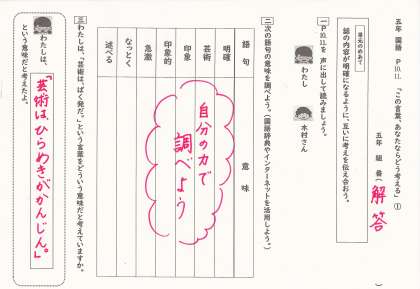 五年 国語 P10.11. 「この言葉、あなたならどう考える」①
五年 組 番(
解答
)
単元のめあて
話の内容が明確になるように、互いに考えを伝え合おう。
一 P10.11.を 声に出して読みましょう。
わたし
木村さん
二 次の語句の意味を調べよう。(国語辞典やインターネットを活用しよう。)
語句
意味
明確
芸術
印象
印象的
急激
なっとく
述べる
自分の力で
調べよう
三 わたしは、「芸術は、ばく発だ。」という言葉をどういう意味だと考えていますか。
わたしは、
「芸術は、ひらめきがかんじん。」
という意味だと考えたよ。